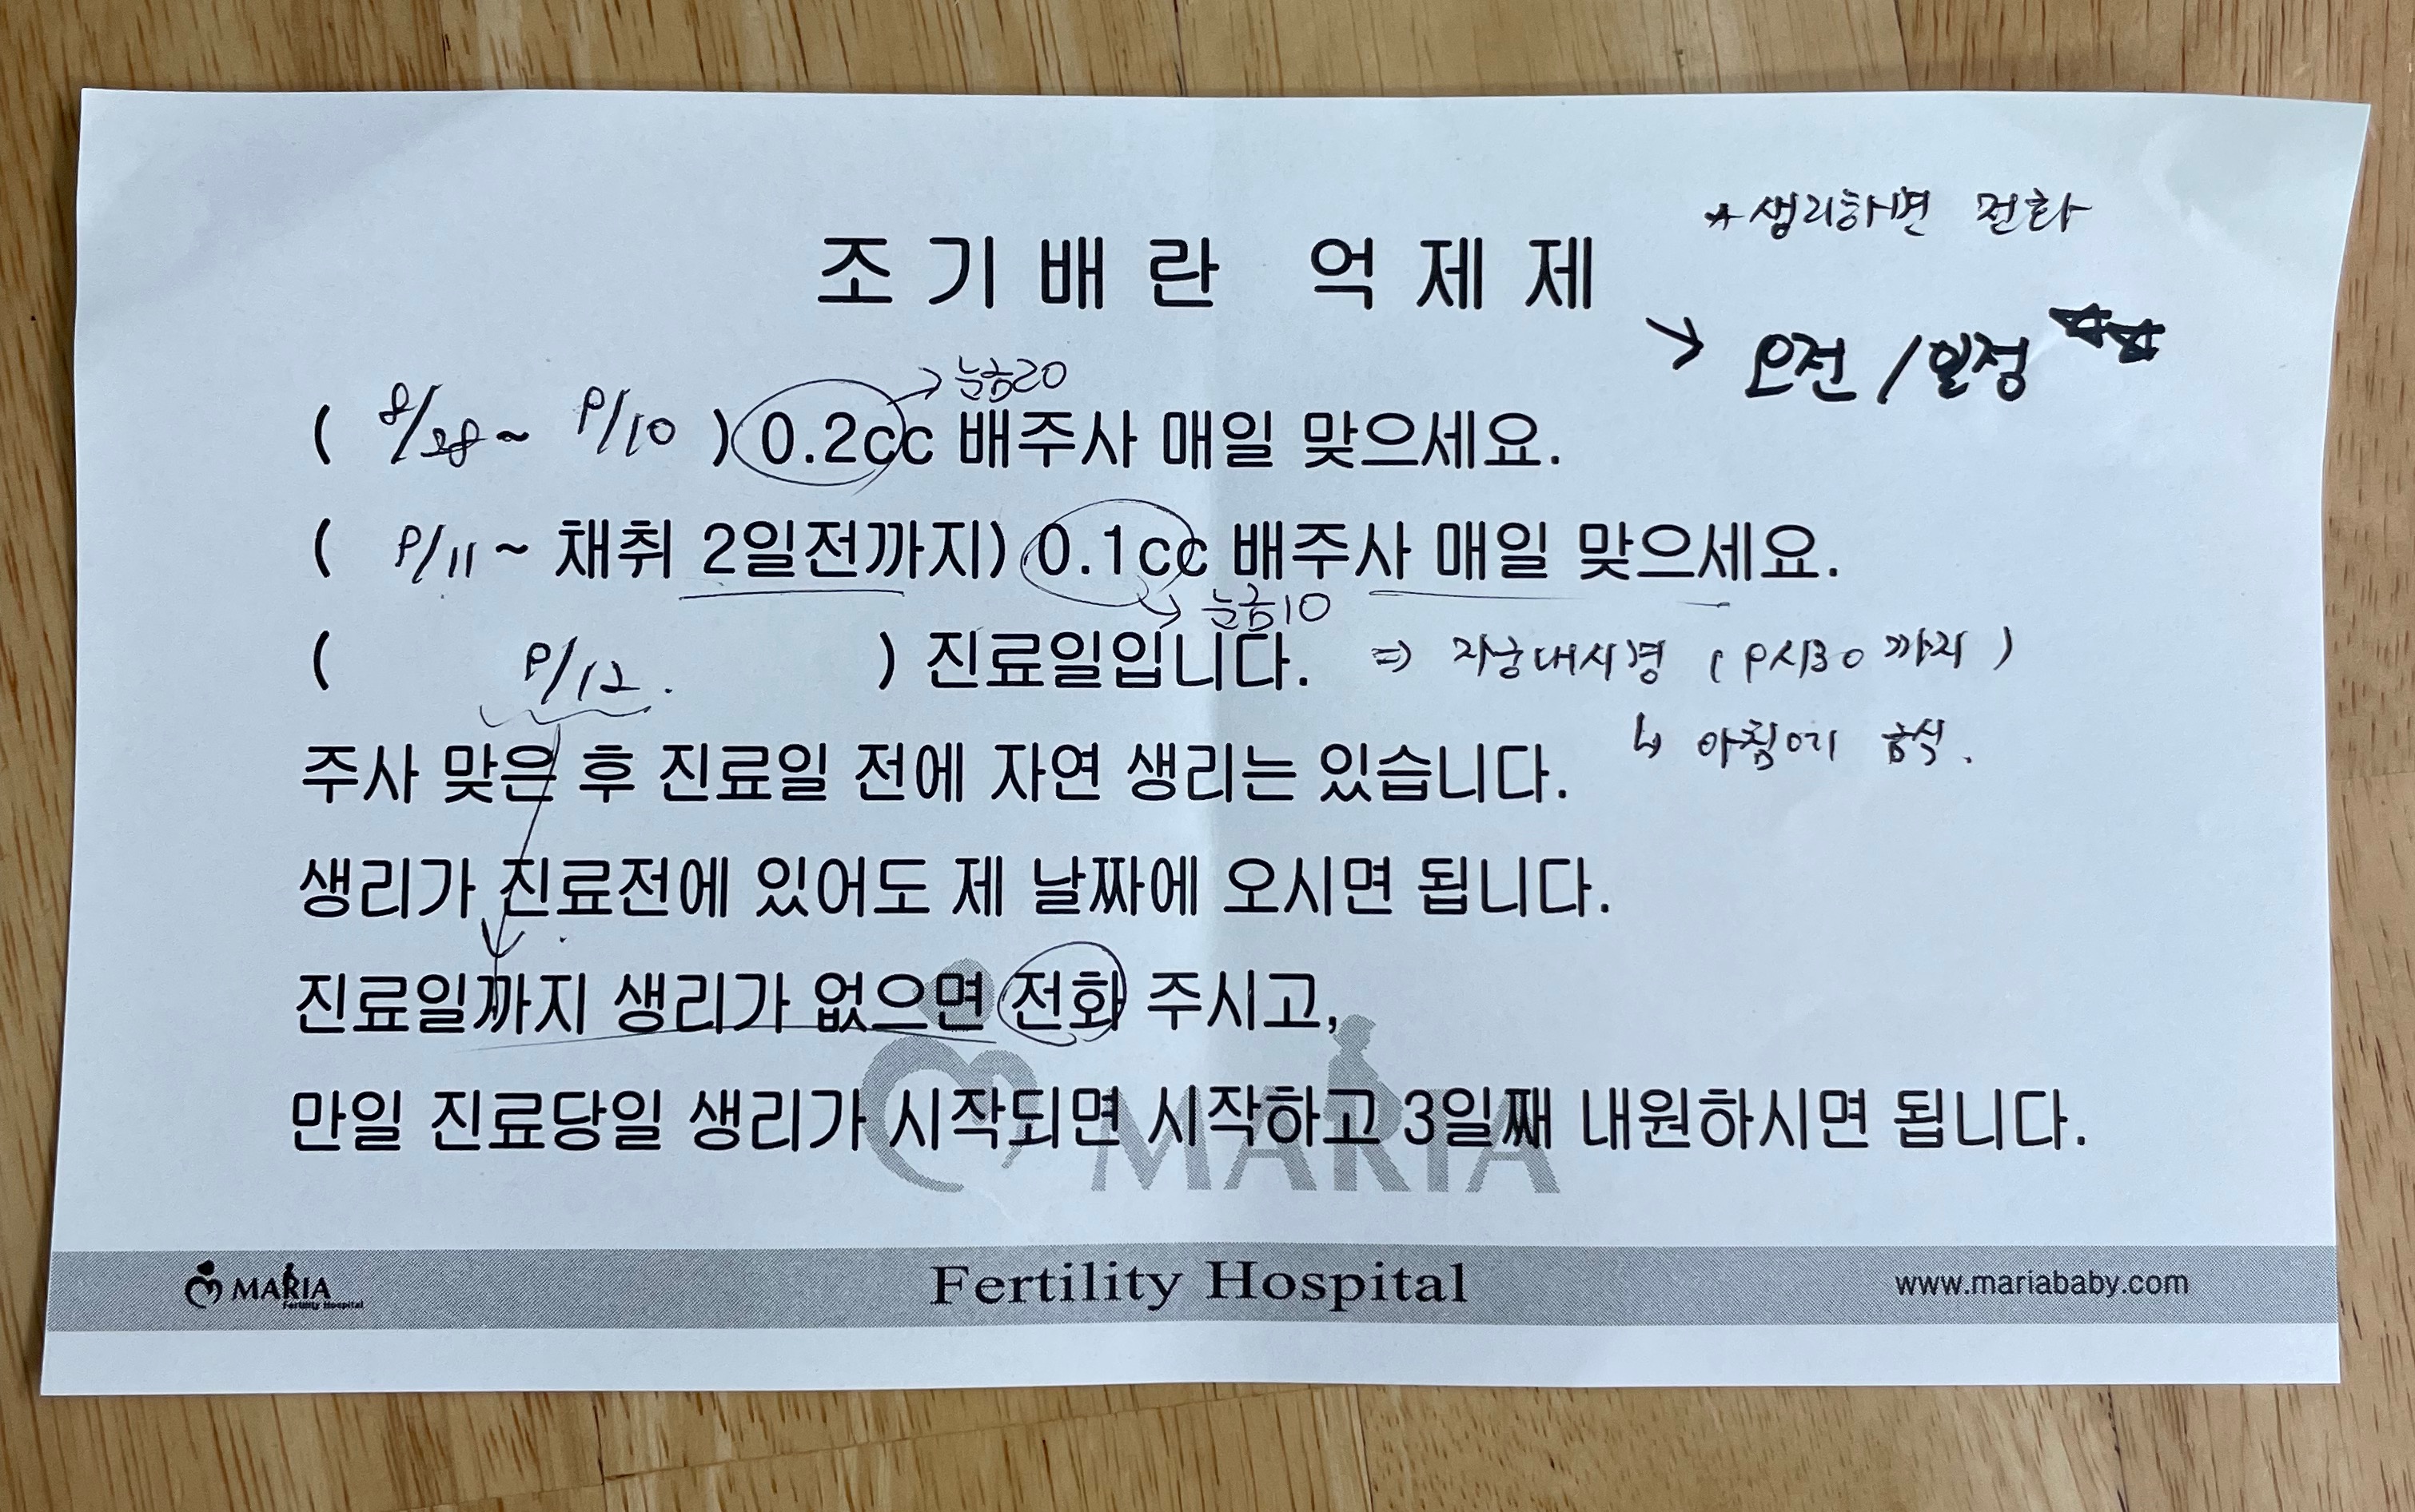 *생리하면 전화
조기배란 억제제
→ 오전 / 일정
→ 눈금20
( 8/28 ~ 9/10 ) 0.2cc 배주사 매일 맞으세요.
( 9/11 ~ 채취 2일전까지) 0.1cc 배주사 매일 맞으세요.
→ 눈금10
( 9/12. ) 진료일입니다. ⇒ 자궁내시경 ( 9시30까지 )
↳ 아침에 금식.
주사 맞은 후 진료일 전에 자연 생리는 있습니다.
생리가 진료전에 있어도 제 날짜에 오시면 됩니다.
진료일까지 생리가 없으면 전화 주시고,
만일 진료당일 생리가 시작되면 시작하고 3일째 내원하시면 됩니다.
MARIA
MARIA Fertility Hospital
Fertility Hospital
www.mariababy.com